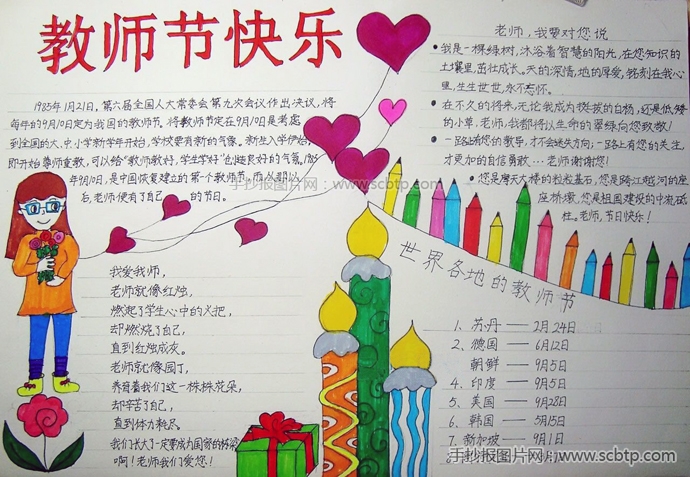 教师节快乐
1985年1月21日，第六届全国人大常委会第九次会议作出决议，将
每年的9月10日定为我国的教师节。将教师节定在9月10日是考虑
到全国的大、中、小学新学年开始，学校要有新的气象。新生入学伊始，
即开始尊师重教，可以给"教师教好，学生学好"创造良好的气氛。
年9月10日，是中国恢复建立的第一个教师节，
后，老师便有了自己的节日。
我爱我师，
老师就像红烛，
燃起了学生心中的火把，
却燃烧了自己，
直到红烛成灰。
老师就像园丁，
养育着我们这一株株花朵，
却辛苦了自己，
直到体力耗尽。
我们长大了一定要成为国家的栋梁
啊！老师我们爱您！
老师，我要对您说
我是一棵绿树，沐浴着智慧的阳光，在您知识的
土壤里，茁壮成长。天的深情，地的厚爱，铭刻在我心
里，生生世世，永不忘怀。
在不久的将来，无论我成为挺拔的白杨，还是低矮
的小草，老师，我都将以生命的翠绿向您致敬！
一路上有您的教导，才不会迷失方向；一路上有您的关注，
才更加的自信勇敢…老师谢谢您！
您是摩天大楼的粒粒基石，您是跨江越河的座
座桥墩，您是祖国建设的中流砥
柱。老师，节日快乐！
世界各地的教师节
1、苏丹——2月24日
2、德国——6月12日
朝鲜——9月5日
4、印度——9月5日
5、美国——9月28日
6、韩国——5月15日
7、新加坡——9月1日
手抄报图片网：www.scbtp.com
手抄报图片网：www.scbtp.com